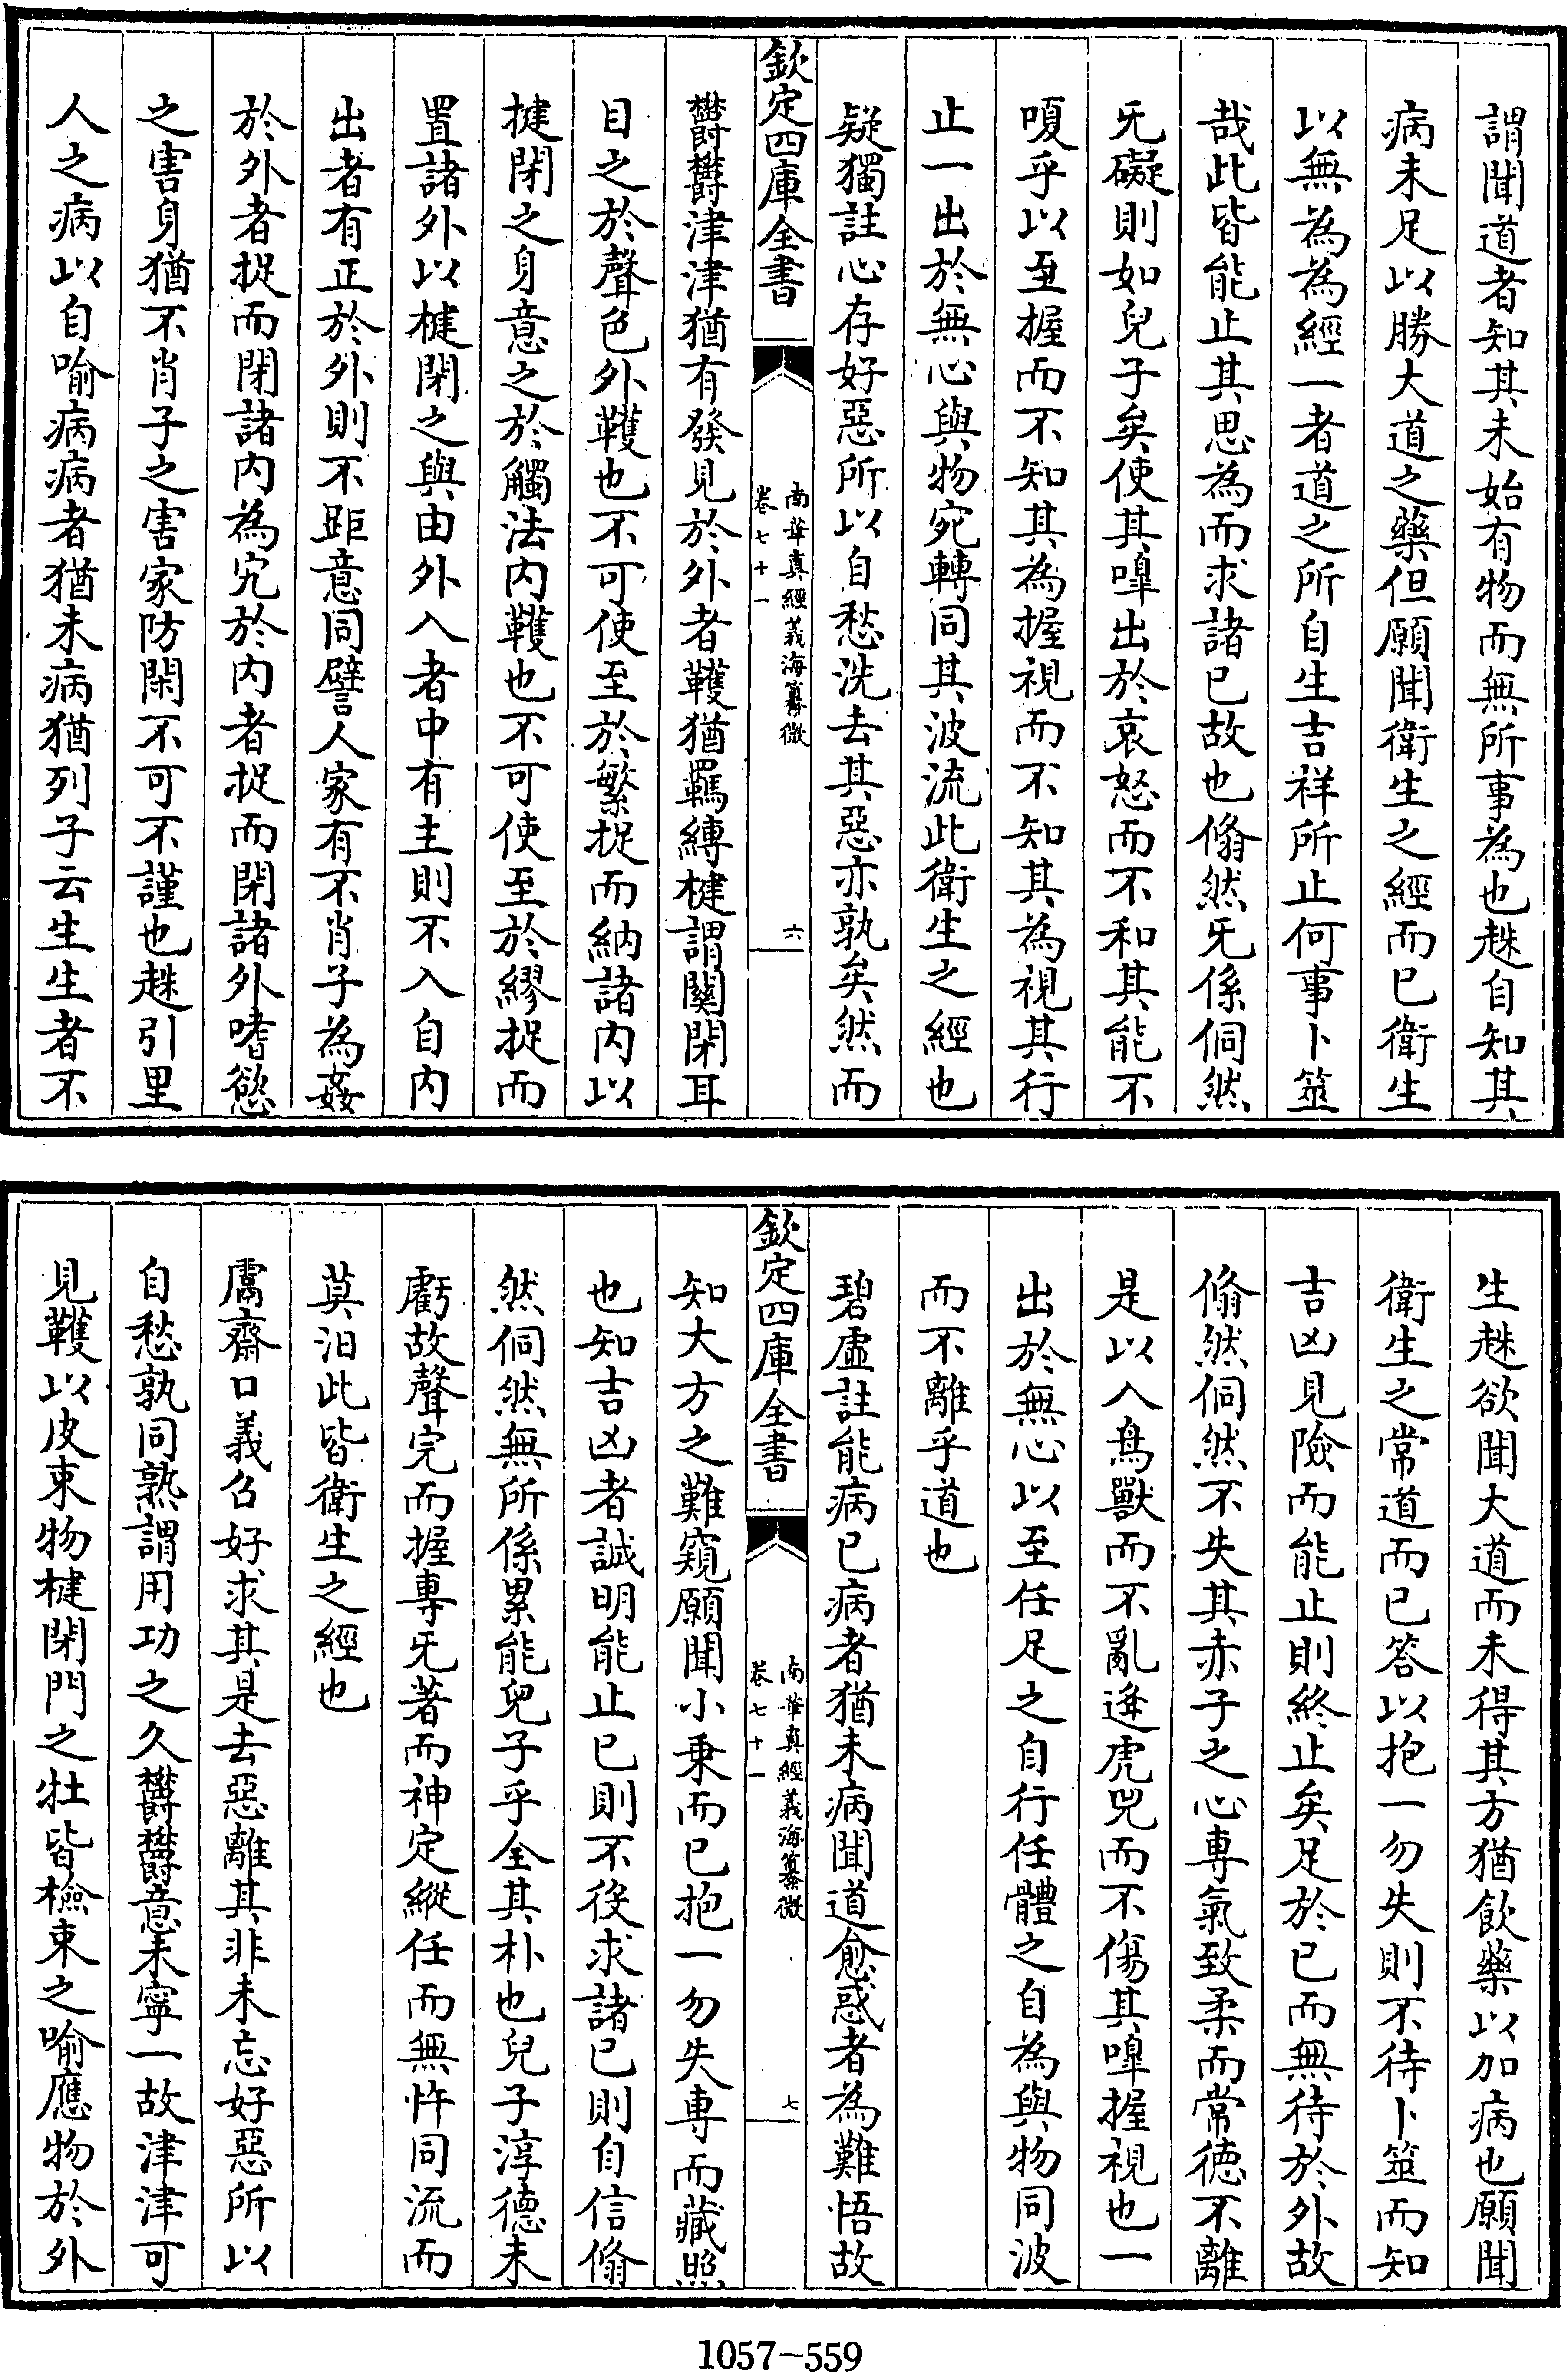 謂聞道者知其未始有物而無所事為也趎自知其
病未足以勝大道之藥但願聞衛生之經而已衛生
以無為為經一者道之所自生吉祥所止何事卜筮
哉此皆能止其思為而求諸已故也翛然旡係侗然
旡礙則如兒子矣使其嘷出於哀怒而不和其能不
嗄乎以至握而不知其為握視而不知其為視其行
止一出於無心與物宛轉同其波流此衛生之經也
疑獨註心存好惡所以自愁洗去其惡亦孰矣然而
欽定四庫全書
南華真經義海纂微
卷七十一
六
欝欝津津猶有發見於外者韄猶羈縛楗謂關閉耳
目之於聲色外韄也不可使至於繁捉而納諸内以
揵閉之身意之於觸法内韄也不可使至於繆捉而
置諸外以楗閉之與由外入者中有主則不入自内
出者有正於外則不距意同譬人家有不肖子為姦
於外者捉而閉諸内為宄於内者捉而閉諸外嗜慾
之害身猶不肖子之害家防閑不可不謹也趎引里
人之病以自喻病病者猶未病猶列子云生生者不
生趎欲聞大道而未得其方猶飲藥以加病也願聞
衛生之常道而已答以抱一勿失則不待卜筮而知
吉凶見險而能止則終止矣足於已而無待於外故
翛然侗然不失其赤子之心專氣致柔而常德不離
是以入鳥獸而不亂逢虎兕而不傷其嘷握視也一
出於無心以至任足之自行任體之自為與物同波
而不離乎道也
碧虛註能病已病者猶未病聞道愈惑者為難悟故
欽定四庫全書
南華真經義海纂微
卷七十一
七
知大方之難窺願聞小乗而已抱一勿失專而藏照
也知吉凶者誠明能止已則不役求諸已則自信翛
然侗然無所係累能兒子乎全其朴也兒子淳德未
虧故聲完而握專旡著而神定縱任而無忤同流而
莫汩此皆衛生之經也
鬳齋口義召好求其是去惡離其非未忘好惡所以
自愁孰同熟謂用功之久欝欝意未寧一故津津可
見韄以皮束物楗閉門之牡皆檢束之喻應物於外
1057-559